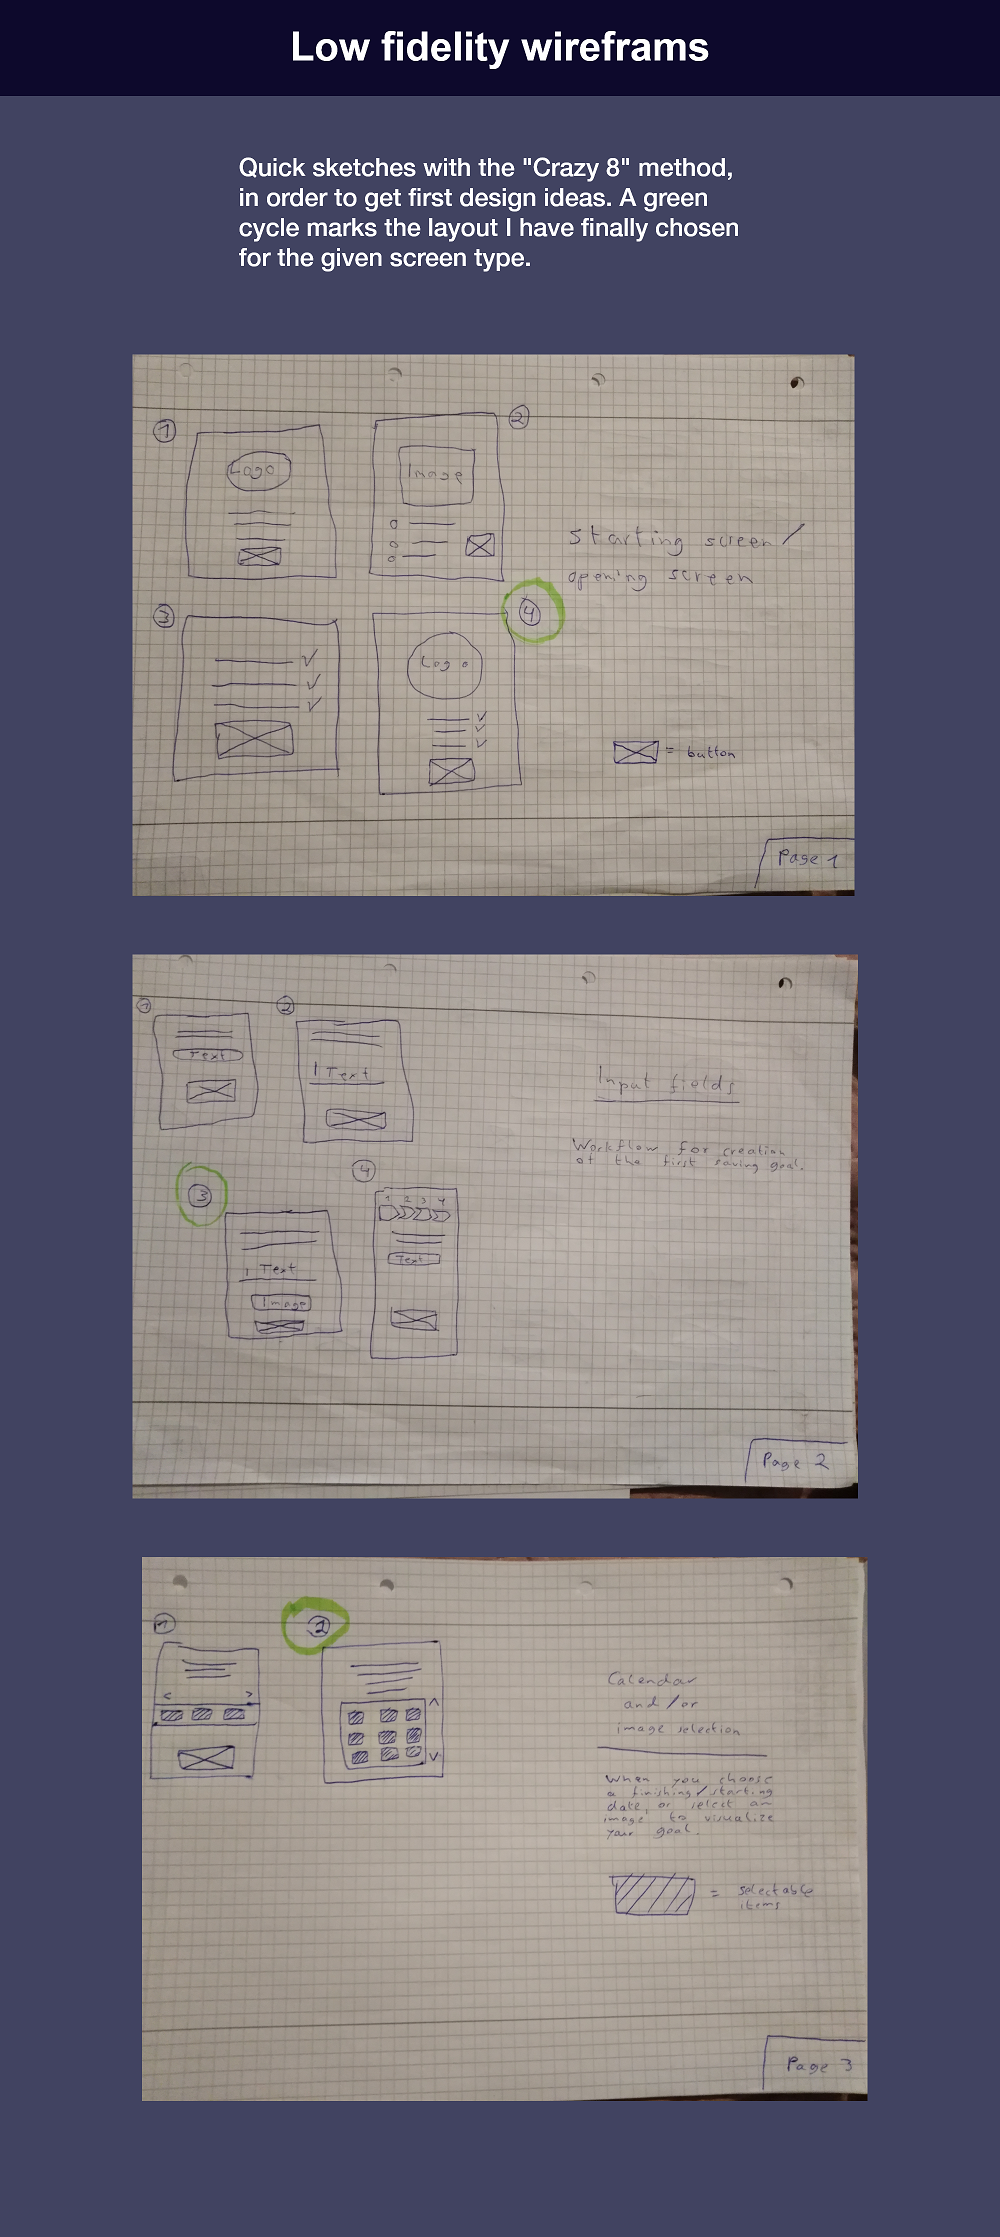 Low fidelity wireframs
Quick sketches with the "Crazy 8" method,
in order to get first design ideas. A green
cycle marks the layout I have finally chosen
for the given screen type.
1
Logo
2
Image
starting screen/
opening screen
3
4
Logo
= button
Page 1
1
Text
2
Text
Input fields
Workflow for creation
of the first saving goal.
3
Text
Image
4
1 2 3 4
Text
Page 2
1
2
< >
Calendar
and/or
image selection
When you choose
a finishing/starting
date, or select an
image to visualize
your goal.
= selectable
items
Page 3